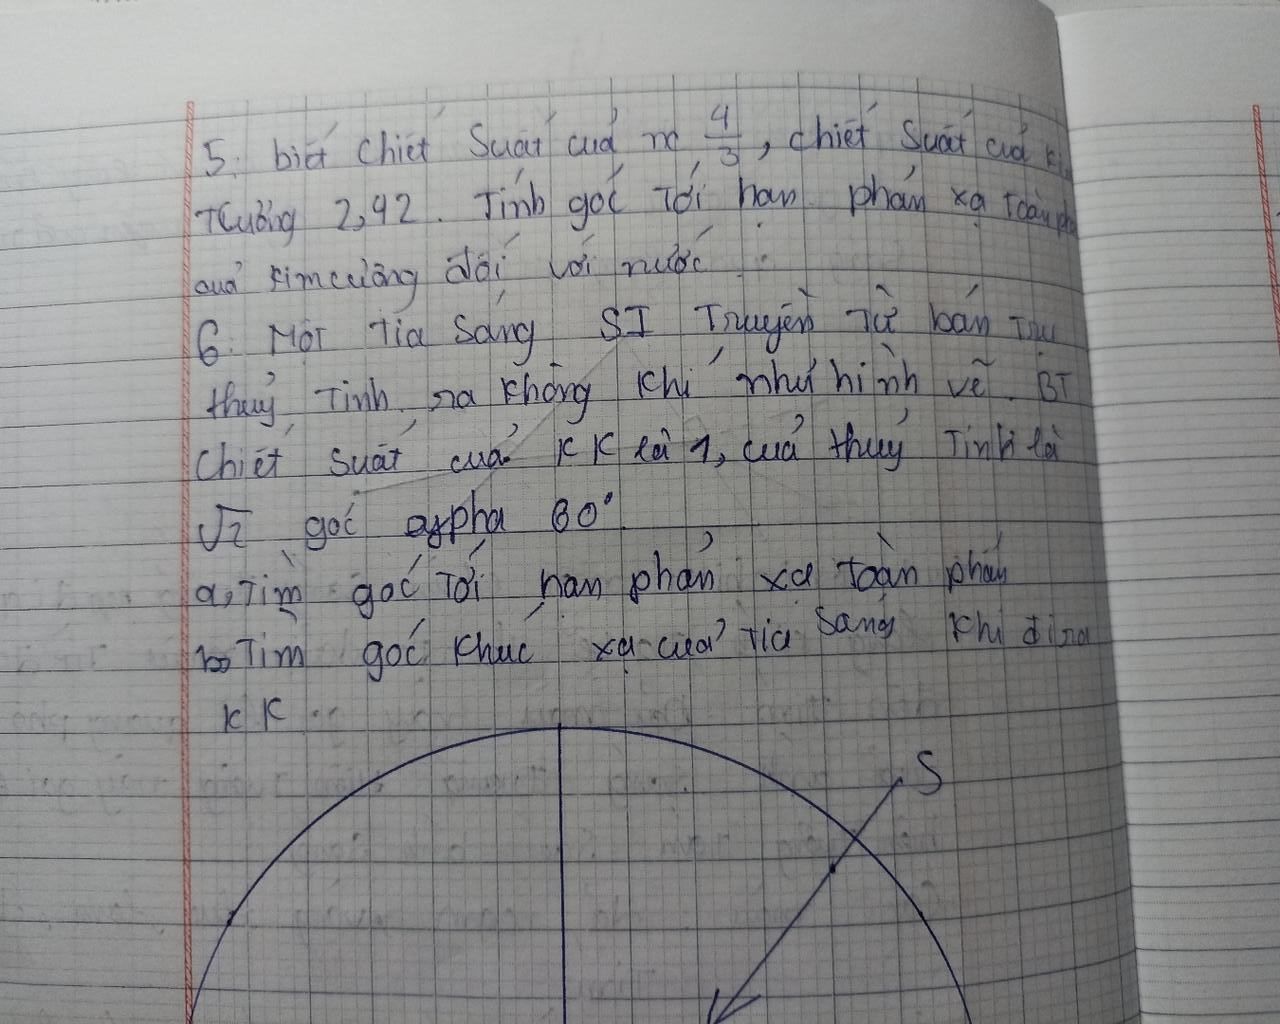 5: biết chiết suất cuả nc 4/3, chiết suất cuả
Cường 2,42. Tính góc tới hạn phản xạ toàn
cuả kimcương đối với nước
6: Một tia sáng SI Truyền từ bán
thuỷ tinh ra không khí như hình vẽ. BT
chiết suất cuả KK là 1, cuả thuỷ tinh là
√2 góc 60°
a, Tìm góc tới hạn phản xạ toàn phần
b Tìm góc khúc xạ cuả tia sáng khi đi ra
KK
S